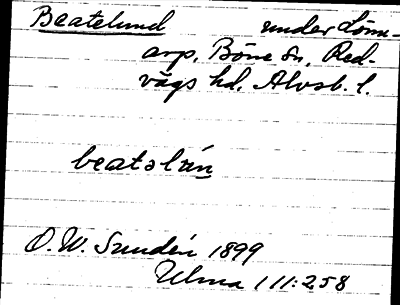 Beatelund under Lönn-
arp, Böne sn, Red-
vägs hd, Älvsb. l.
beatəlún
O. W. Sundén 1899
Ulma 111:258